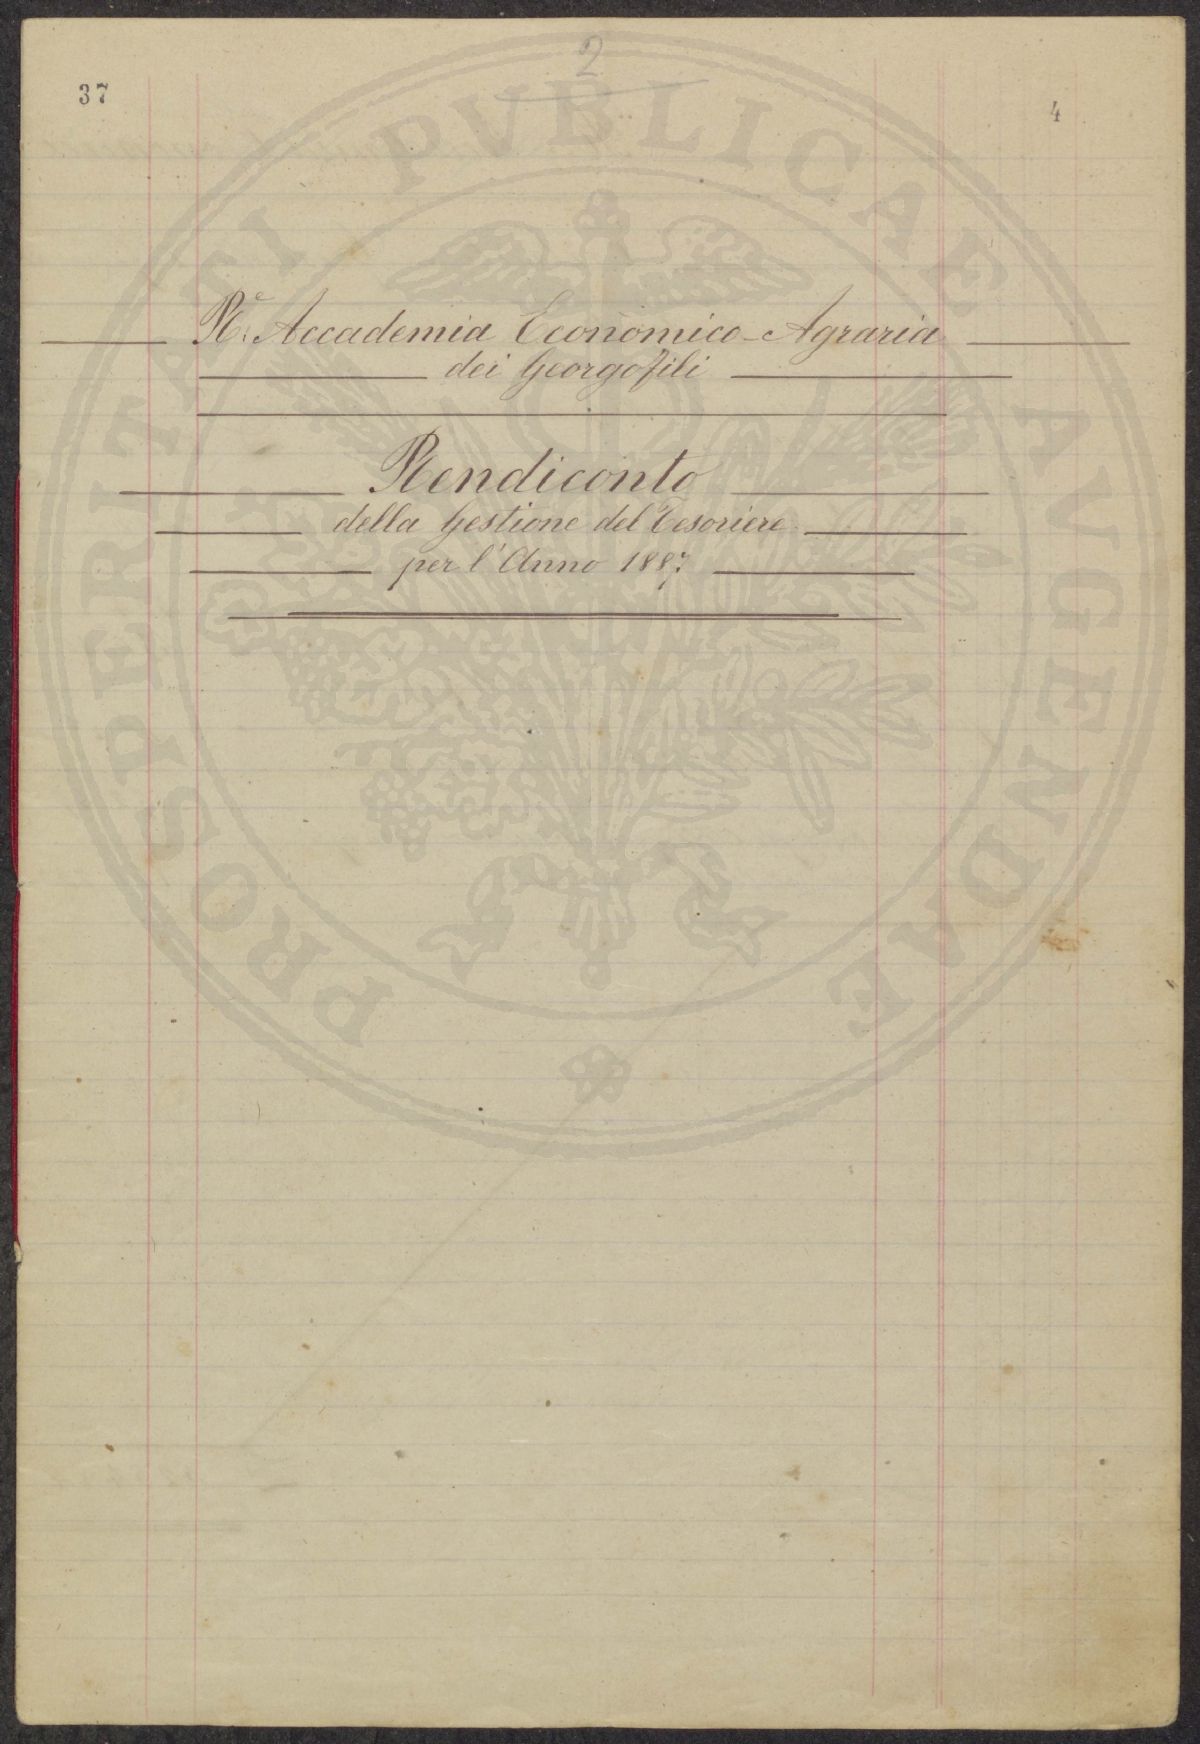 2
37
4
R.e Accademia Economico-Agraria
dei Georgofili
Rendiconto
della Gestione del Tesoriere
per l'Anno 1887.
PROSPERITATI PVBLICAE AVGENDAE